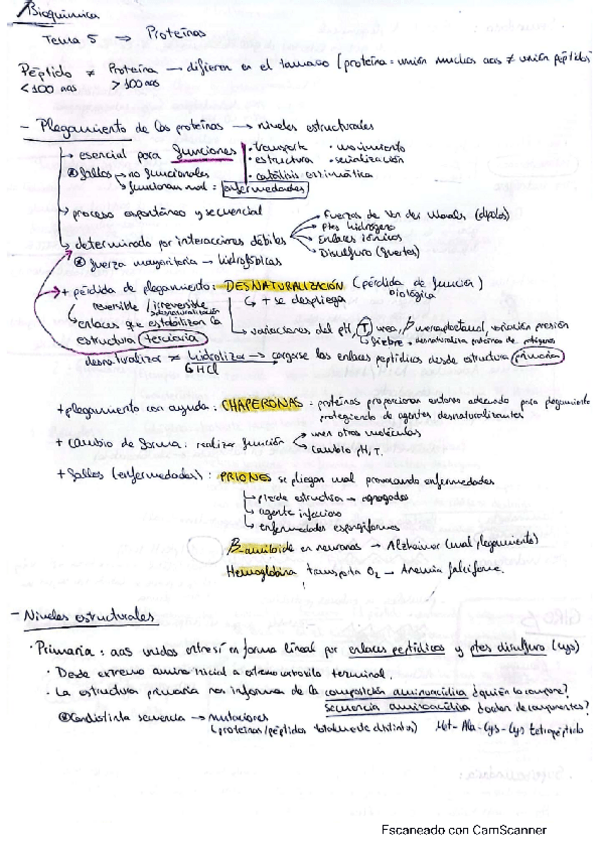 Bioquímica
Tema 5 ⇒ Proteínas
Péptido ≠ Proteína → difieren en el tamaño (proteína = unión muchos aas ≠ unión péptidos)
<100 aas >100 aas
- Plegamiento de las proteínas → niveles estructurales
→ esencial para funciones · transporte · movimiento
fallos → no funcionales · estructura · señalización
funcionan mal = enfermedades · catálisis enzimática
→ proceso espontáneo y secuencial
→ determinado por interacciones débiles
Fuerzas de Van der Waals (dipolos)
Ptes hidrógeno
Enlaces iónicos
Disulfuro (fuertes)
fuerza mayoritaria → hidrofóbicas
+ pérdida de plegamiento: DESNATURALIZACIÓN (pérdida de función biológica)
reversible / irreversible → se despliega
enlaces que estabilizan la estructura terciaria
→ variaciones del pH, T, urea, β mercaptoetanol, variación presión
fiebre → desnaturaliza proteínas de patógenos
desnaturalizar ≠ hidrolizar → cargarse los enlaces peptídicos desde estructura primaria
HCl
+ plegamiento con ayuda: CHAPERONAS = proteínas proporcionan entorno adecuado para plegamiento
protegiendo de agentes desnaturalizantes
+ cambio de forma: realizar función
unen otras moléculas
cambio pH, T.
+ fallos (enfermedades): PRIONES se pliegan mal provocando enfermedades
→ pierde estructura → agregados
→ agente infeccioso
→ enfermedades espongiformes
β-amiloide en neuronas → Alzheimer (mal plegamiento)
Hemoglobina transporta O₂ → Anemia falciforme.
- Niveles estructurales
· Primaria: aas unidos entre sí en forma lineal por enlaces peptídicos y ptes disulfuro (cys)
· Desde extremo amino inicial a extremo carboxilo terminal.
· La estructura primaria nos informa de la composición aminoacídica ¿quién la compone?
secuencia aminoacídica ¿orden de componentes?
distinta secuencia → mutaciones
(proteínas/péptidos totalmente distintos) Met-Ala-Cys-Cys tetrapéptido
Escaneado con CamScanner